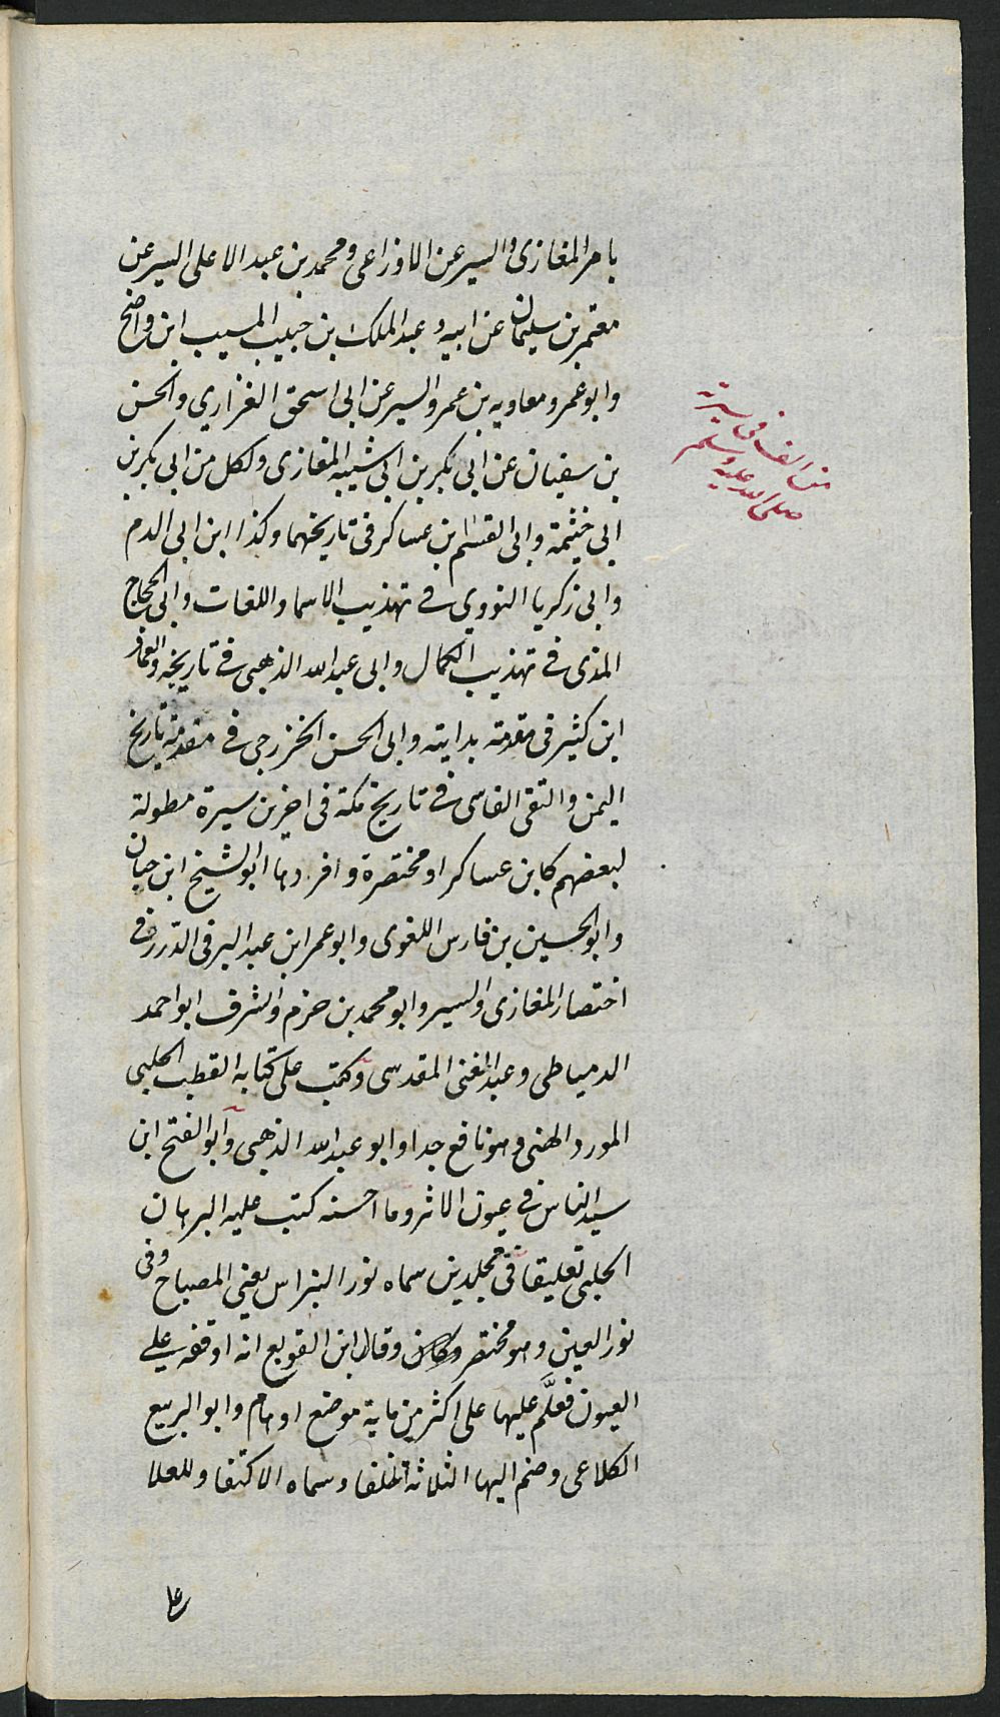 بامر المغازى والسير عن الاوزاعى ومحمد بن عبد الاعلى السير عن
معتمر بن سليمان عن ابيه وعبد الملك بن حبيب المسيب ابن واضح
وابو عمرو معاويه بن عمرو السير عن ابى اسحق الفزاري والحسن
بن سفيان عن ابى بكر بن ابى شيبه المغازى ولكل من ابى بكر بن
ابي خيثمة وابى القسم ابن عساكر فى تاريخهما وكذا ابن ابى الدم
وابى زكريا النووي في تهذيب الاسما واللغات وابى الحجاج
المذى في تهذيب الكمال وابى عبد الله الذهبى في تاريخه والعماد
ابن كثير فى مقدمة بدايته وابى الحسن الخزرجى في مقدمة تاريخ
اليمن والتقى الفاسى في تاريخ مكة فى اخرين سيرة مطولة
لبعضهم كابن عساكر او مختصرة وافردها ابو الشيخ ابن حبان
وابو الحسين بن فارس اللغوى وابو عمر ابن عبد البر فى الدّرر في
اختصار المغازى والسير وابو محمد بن حزم والشرف ابو احمد
الدمياطى وعبد الغنى المقدسى وكتب على كتابه القطب الحلبى
المورد الهنى وهو نافع جدا وابو عبد الله الذهبى وابو الفتح ابن
سيد الناس في عيون الاثر وما احسنه كتب عليه البرهان
الحلبى تعليقا فى مجلدين سماه نور النبراس يعنى المصباح وفى
نور العين وهو مختصر وقال ابن القوبع انه اوقفه على
العيون فعلَّم عليها على اكثر من ماية موضع اوهام وابو الربيع
الكلاعى وضم اليها الثلاثة الخلفا وسماه الاكتفا وللعلا
من الف فى سيرته
صلى الله عليه وسلم